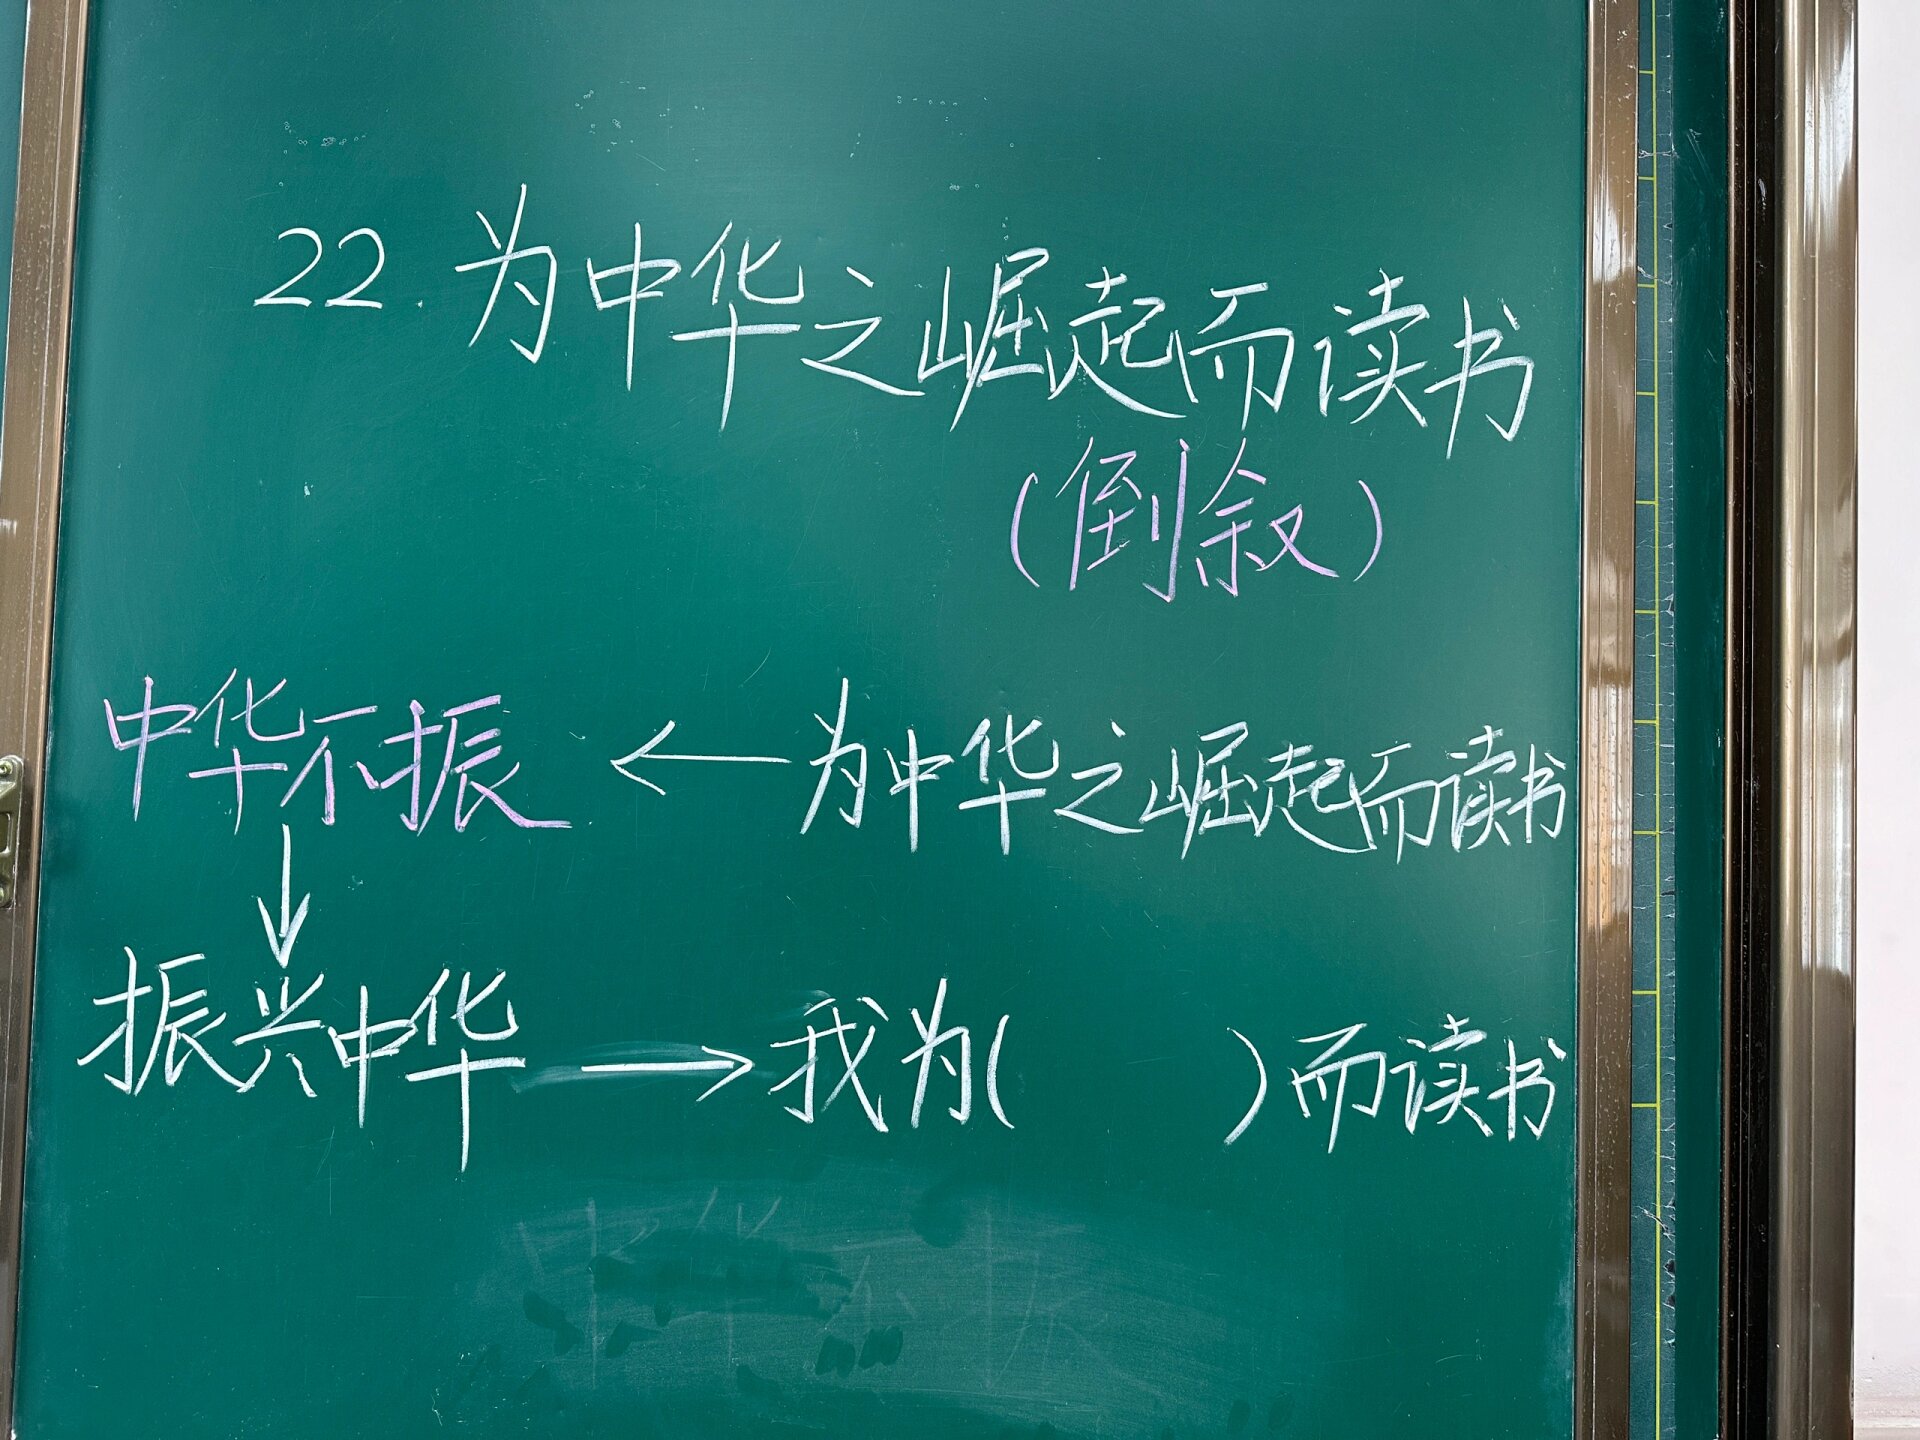 22.为中华之崛起而读书
(倒叙)
中华不振 ← 为中华之崛起而读书
↓
振兴中华 → 我为(    )而读书